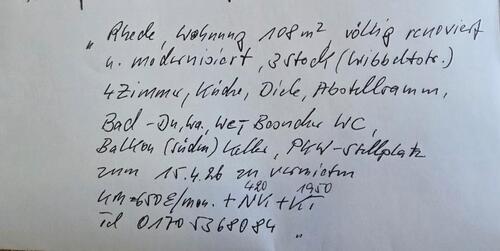 „Rhede, Wohnung 108m², völlig renoviert
u. modernisiert, 3 Stock (Wibbeltstr.)
4 Zimmer, Küche, Diele, Abstellraum,
Bad - Du, Wa, WC, WC,
Balkon (Süden) Keller, PKW-Stellplatz
zum 15.4.26 zu vermieten
KM = 650 €/mon. + NK 420 + KT 1950
Tel 0170 5368084"